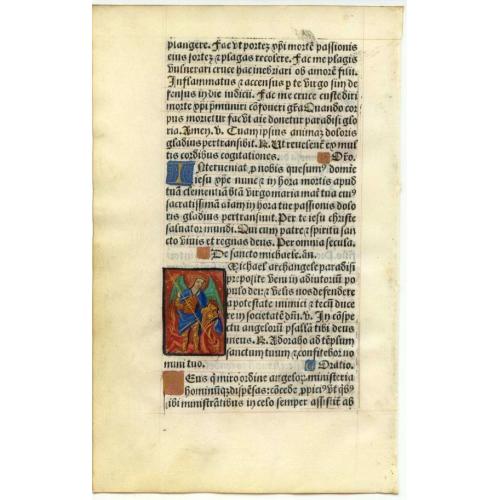 plangere. Fac vt portē xp̄i mortē passionis
eius sortez ⁊ plagas recolere. Fac me plagis
vulnerari cruce hac inebriari ob amorē filii.
Inflammatus ⁊ accensus p te virgo sim de
fensus in die iudicii. Fac me cruce custodiri
morte xp̄i p̄muniri cōfoueri gr̄a Quando cor
pus morietur fac vt aīe donetur paradisi glo
ria. Amen. v. Tuam ipsius animaȝ doloris
gladius pertransibit. R. Ut reuelent̄ ex mul
tis cordibus cogitationes. Or̄o.
Interueniat p nobis quesumꝰ domīe
iesu xp̄e nunc ⁊ in hora mortis apud
tuā clementiā btā virgo maria mat̄ tua cuiꝰ
sacratissimā aīam in hora tue passionis dolo
ris gladius pertransiuit. Per te iesu christe
saluator mundi. Qui cum patre ⁊ spiritu san
cto viuis et regnas deus. Per omnia secula.
De sancto michaele. añ.
Michael archangele paradisi
preposite veni in adiutoriū po
pulo dei ⁊ velis nos defendere
a potestate inimici ⁊ tecū duce
re in societatē dn̄i. v. In cōspe
ctu angelorū psallā tibi deus
meus. R. Adorabo ad tēplum
sanctum tuum ⁊ confitebor no
mini tuo. Oratio.
Deus q̄ miro ordine angeloꝝ ministeria
hominūqȝ dispēsas: cōcede ppiciꝰ vt q̄bꝰ
tibi ministrātibus in celo semper assistit̄ ab